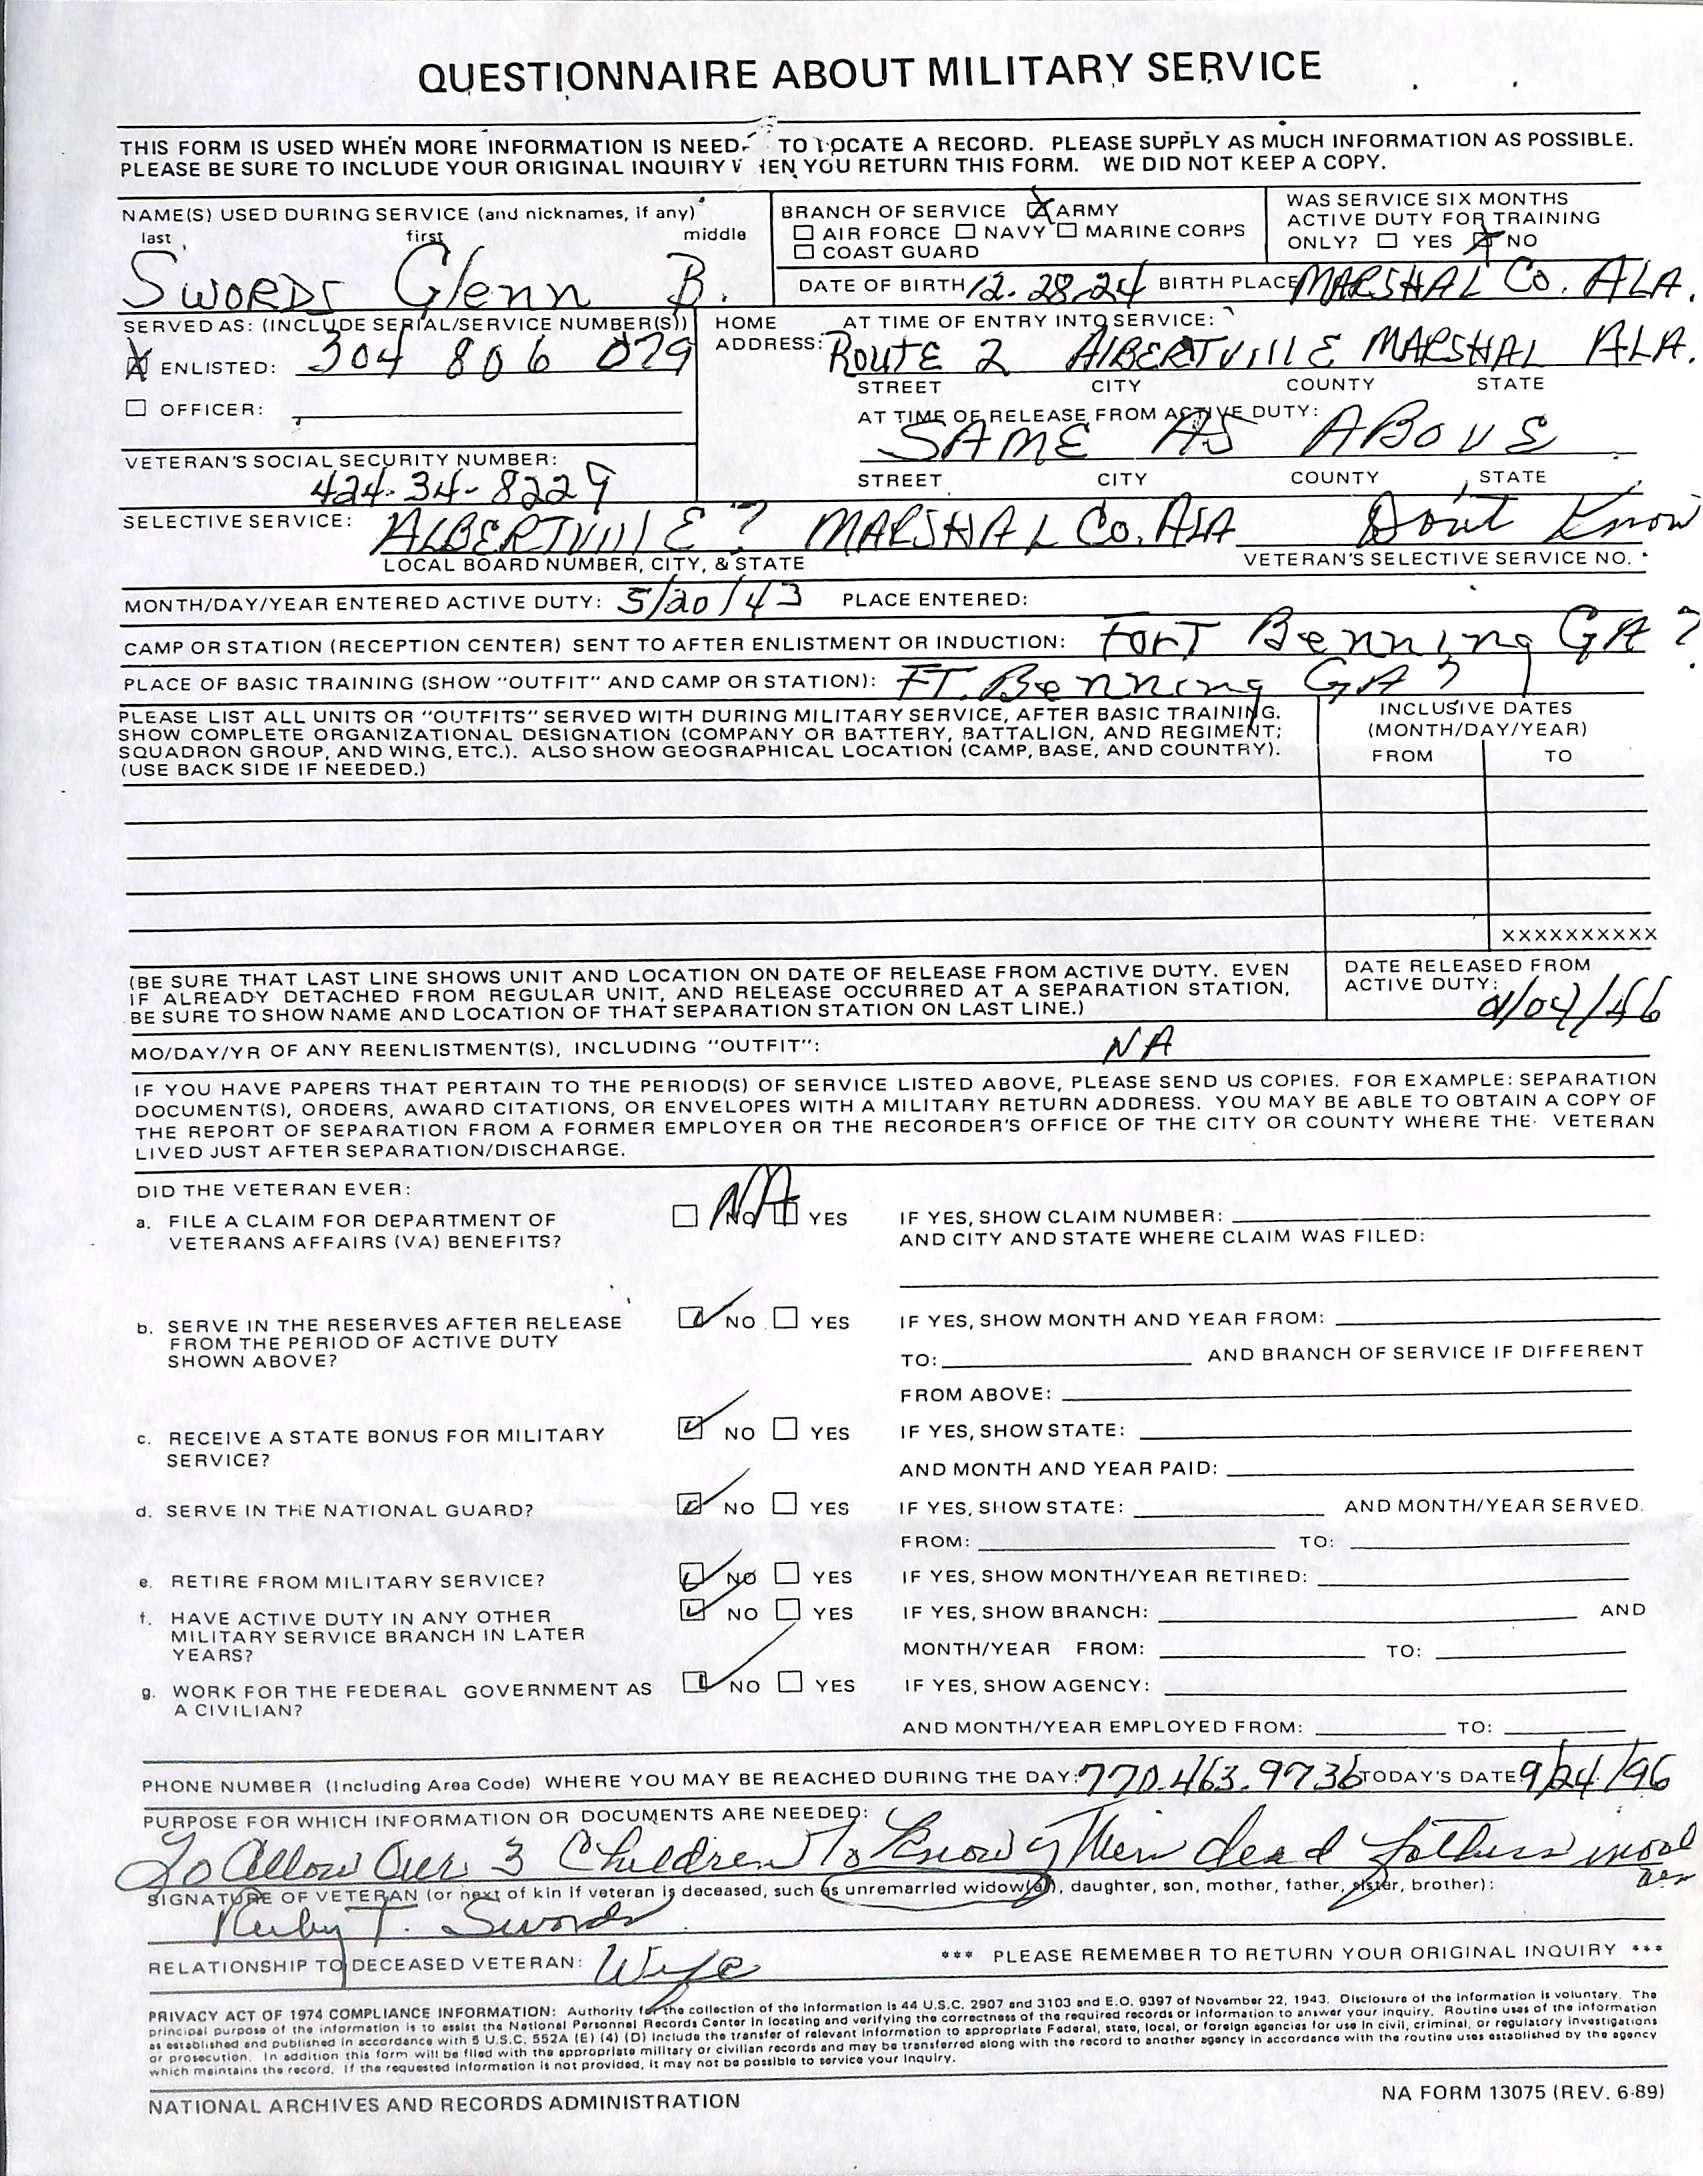 QUESTIONNAIRE ABOUT MILITARY SERVICE
THIS FORM IS USED WHEN MORE INFORMATION IS NEED TO LOCATE A RECORD. PLEASE SUPPLY AS MUCH INFORMATION AS POSSIBLE.
PLEASE BE SURE TO INCLUDE YOUR ORIGINAL INQUIRY WHEN YOU RETURN THIS FORM. WE DID NOT KEEP A COPY.
NAME(S) USED DURING SERVICE (and nicknames, if any)
last first middle
SWORDS Glenn B.
BRANCH OF SERVICE ARMY
AIR FORCE NAVY MARINE CORPS
COAST GUARD
WAS SERVICE SIX MONTHS
ACTIVE DUTY FOR TRAINING
ONLY? YES NO
DATE OF BIRTH 12-28-24 BIRTH PLACE MARSHAL Co. ALA.
SERVED AS: (INCLUDE SERIAL/SERVICE NUMBER(S))
ENLISTED: 304 806 079
OFFICER:
HOME ADDRESS: AT TIME OF ENTRY INTO SERVICE:
ROUTE 2 AlBERTVIllE MARSHAL ALA.
STREET CITY COUNTY STATE
AT TIME OF RELEASE FROM ACTIVE DUTY:
SAME AS ABOVE
STREET CITY COUNTY STATE
VETERAN'S SOCIAL SECURITY NUMBER:
424-34-8229
SELECTIVE SERVICE: ALBERTVIllE? MARSHAL Co. ALA Don't Know
LOCAL BOARD NUMBER, CITY, & STATE VETERAN'S SELECTIVE SERVICE NO.
MONTH/DAY/YEAR ENTERED ACTIVE DUTY: 5/20/43 PLACE ENTERED:
CAMP OR STATION (RECEPTION CENTER) SENT TO AFTER ENLISTMENT OR INDUCTION: FORT Benning GA ?
PLACE OF BASIC TRAINING (SHOW "OUTFIT" AND CAMP OR STATION): FT. Benning GA ?
PLEASE LIST ALL UNITS OR "OUTFITS" SERVED WITH DURING MILITARY SERVICE, AFTER BASIC TRAINING.
SHOW COMPLETE ORGANIZATIONAL DESIGNATION (COMPANY OR BATTERY, BATTALION, AND REGIMENT;
SQUADRON GROUP, AND WING, ETC.). ALSO SHOW GEOGRAPHICAL LOCATION (CAMP, BASE, AND COUNTRY).
(USE BACK SIDE IF NEEDED.)
INCLUSIVE DATES
(MONTH/DAY/YEAR)
FROM TO
XXXXXXXXXX
(BE SURE THAT LAST LINE SHOWS UNIT AND LOCATION ON DATE OF RELEASE FROM ACTIVE DUTY. EVEN
IF ALREADY DETACHED FROM REGULAR UNIT, AND RELEASE OCCURRED AT A SEPARATION STATION,
BE SURE TO SHOW NAME AND LOCATION OF THAT SEPARATION STATION ON LAST LINE.)
DATE RELEASED FROM
ACTIVE DUTY:
MO/DAY/YR OF ANY REENLISTMENT(S), INCLUDING "OUTFIT": NA
IF YOU HAVE PAPERS THAT PERTAIN TO THE PERIOD(S) OF SERVICE LISTED ABOVE, PLEASE SEND US COPIES. FOR EXAMPLE: SEPARATION
DOCUMENT(S), ORDERS, AWARD CITATIONS, OR ENVELOPES WITH A MILITARY RETURN ADDRESS. YOU MAY BE ABLE TO OBTAIN A COPY OF
THE REPORT OF SEPARATION FROM A FORMER EMPLOYER OR THE RECORDER'S OFFICE OF THE CITY OR COUNTY WHERE THE VETERAN
LIVED JUST AFTER SEPARATION/DISCHARGE.
DID THE VETERAN EVER:
a. FILE A CLAIM FOR DEPARTMENT OF NA NO YES IF YES, SHOW CLAIM NUMBER:
VETERANS AFFAIRS (VA) BENEFITS? AND CITY AND STATE WHERE CLAIM WAS FILED:
b. SERVE IN THE RESERVES AFTER RELEASE NO YES IF YES, SHOW MONTH AND YEAR FROM:
FROM THE PERIOD OF ACTIVE DUTY
SHOWN ABOVE? TO: AND BRANCH OF SERVICE IF DIFFERENT
FROM ABOVE:
c. RECEIVE A STATE BONUS FOR MILITARY NO YES IF YES, SHOW STATE:
SERVICE?
AND MONTH AND YEAR PAID:
d. SERVE IN THE NATIONAL GUARD? NO YES IF YES, SHOW STATE: AND MONTH/YEAR SERVED.
FROM: TO:
e. RETIRE FROM MILITARY SERVICE? NO YES IF YES, SHOW MONTH/YEAR RETIRED:
f. HAVE ACTIVE DUTY IN ANY OTHER NO YES IF YES, SHOW BRANCH: AND
MILITARY SERVICE BRANCH IN LATER
YEARS? MONTH/YEAR FROM: TO:
g. WORK FOR THE FEDERAL GOVERNMENT AS NO YES IF YES, SHOW AGENCY:
A CIVILIAN?
AND MONTH/YEAR EMPLOYED FROM: TO:
PHONE NUMBER (Including Area Code) WHERE YOU MAY BE REACHED DURING THE DAY: 770-463-9736 TODAY'S DATE: 9/24/96
PURPOSE FOR WHICH INFORMATION OR DOCUMENTS ARE NEEDED:
To Allow Our 3 Children To Know of Their dead fathers
SIGNATURE OF VETERAN (or next of kin if veteran is deceased, such as unremarried widow(er), daughter, son, mother, father, sister, brother):
Ruby T. Swords
RELATIONSHIP TO DECEASED VETERAN: Wife *** PLEASE REMEMBER TO RETURN YOUR ORIGINAL INQUIRY ***
PRIVACY ACT OF 1974 COMPLIANCE INFORMATION: Authority for the collection of the information is 44 U.S.C. 2907 and 3103 and E.O. 9397 of November 22, 1943. Disclosure of the information is voluntary. The
principal purpose of the information is to assist the National Personnel Records Center in locating and verifying the correctness of the required records or information to answer your inquiry. Routine uses of the information
as established and published in accordance with 5 U.S.C. 552A (E) (4) (D) include the transfer of relevant information to appropriate Federal, state, local, or foreign agencies for use in civil, criminal, or regulatory investigations
or prosecution. In addition this form will be filed with the appropriate military or civilian records and may be transferred along with the record to another agency in accordance with the routine uses established by the agency
which maintains the record. If the requested information is not provided, it may not be possible to service your inquiry.
NATIONAL ARCHIVES AND RECORDS ADMINISTRATION NA FORM 13075 (REV. 6-89)